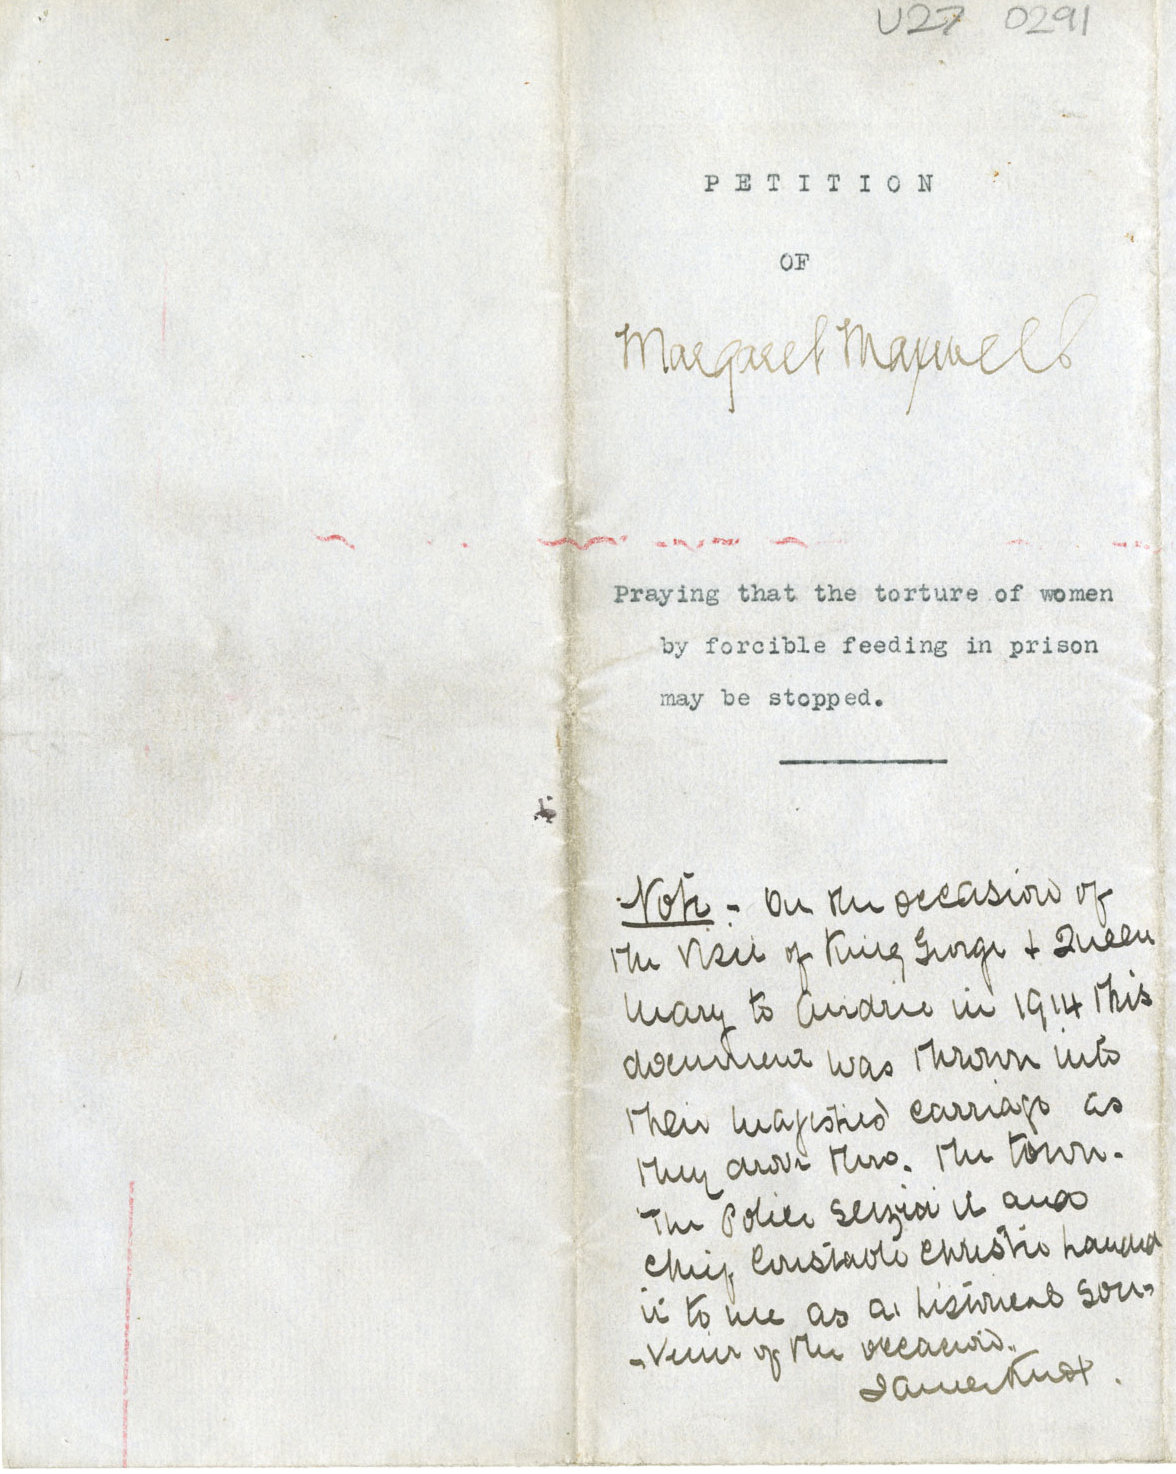 U27 0291
PETITION
OF
Margaret Maxwell
Praying that the torture of women
by forcible feeding in prison
may be stopped.
Note - On the occasion of
the visit of King George + Queen
Mary to Airdrie in 1914 this
document was thrown into
their majesties carriage as
they drove thro. the town.
The Police seized it and
Chief Constable Christie handed
it to me as a historical sou-
-venir of the occasion.
James Knox.